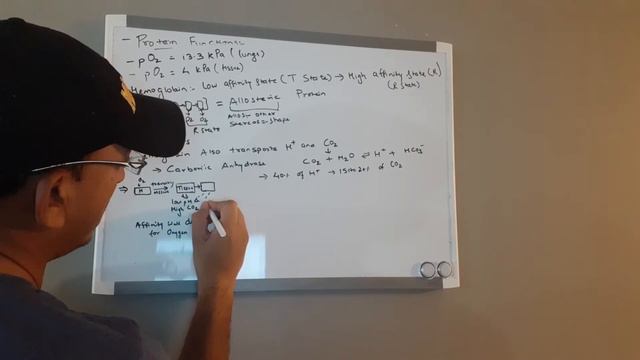 - Protein Functions
- pO2 = 13.3 kPa (lungs)
- pO2 = 4 kPa (tissue)
Hemoglobin:- Low affinity state (T State) → High affinity State (R)
(R State)
= Allosteric Protein
O2 O2
Allos = other
R State
Stereos = shape
Also transports H+ and CO2
→ Carbonic Anhydrase
CO2 + H2O ⇌ H+ + HCO3-
→ 40% of H+ → 15 to 20% of CO2
O2
⇒ H → Tissue →
low pH &
High CO2
Affinity will
for Oxygen